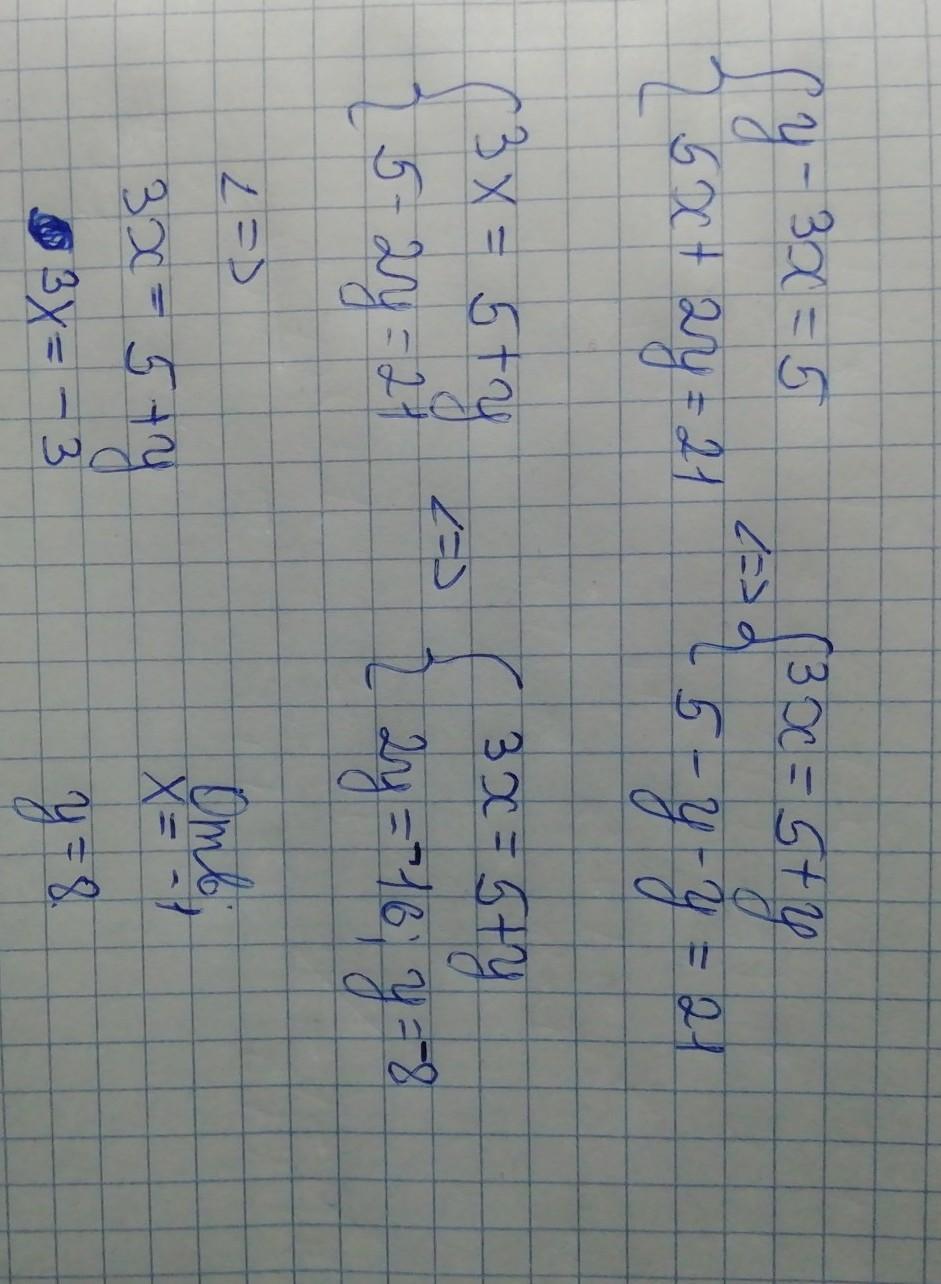 { y - 3x = 5
{ 5x + 2y = 21
<=> { 3x = 5 + y
{ 5 - y - y = 21
{ 3x = 5 + y
{ 5 - 2y = 21
<=> { 3x = 5 + y
{ 2y = -16; y = -8
<=>
3x = 5 + y
3x = -3
Отв;
x = -1
y = 8.